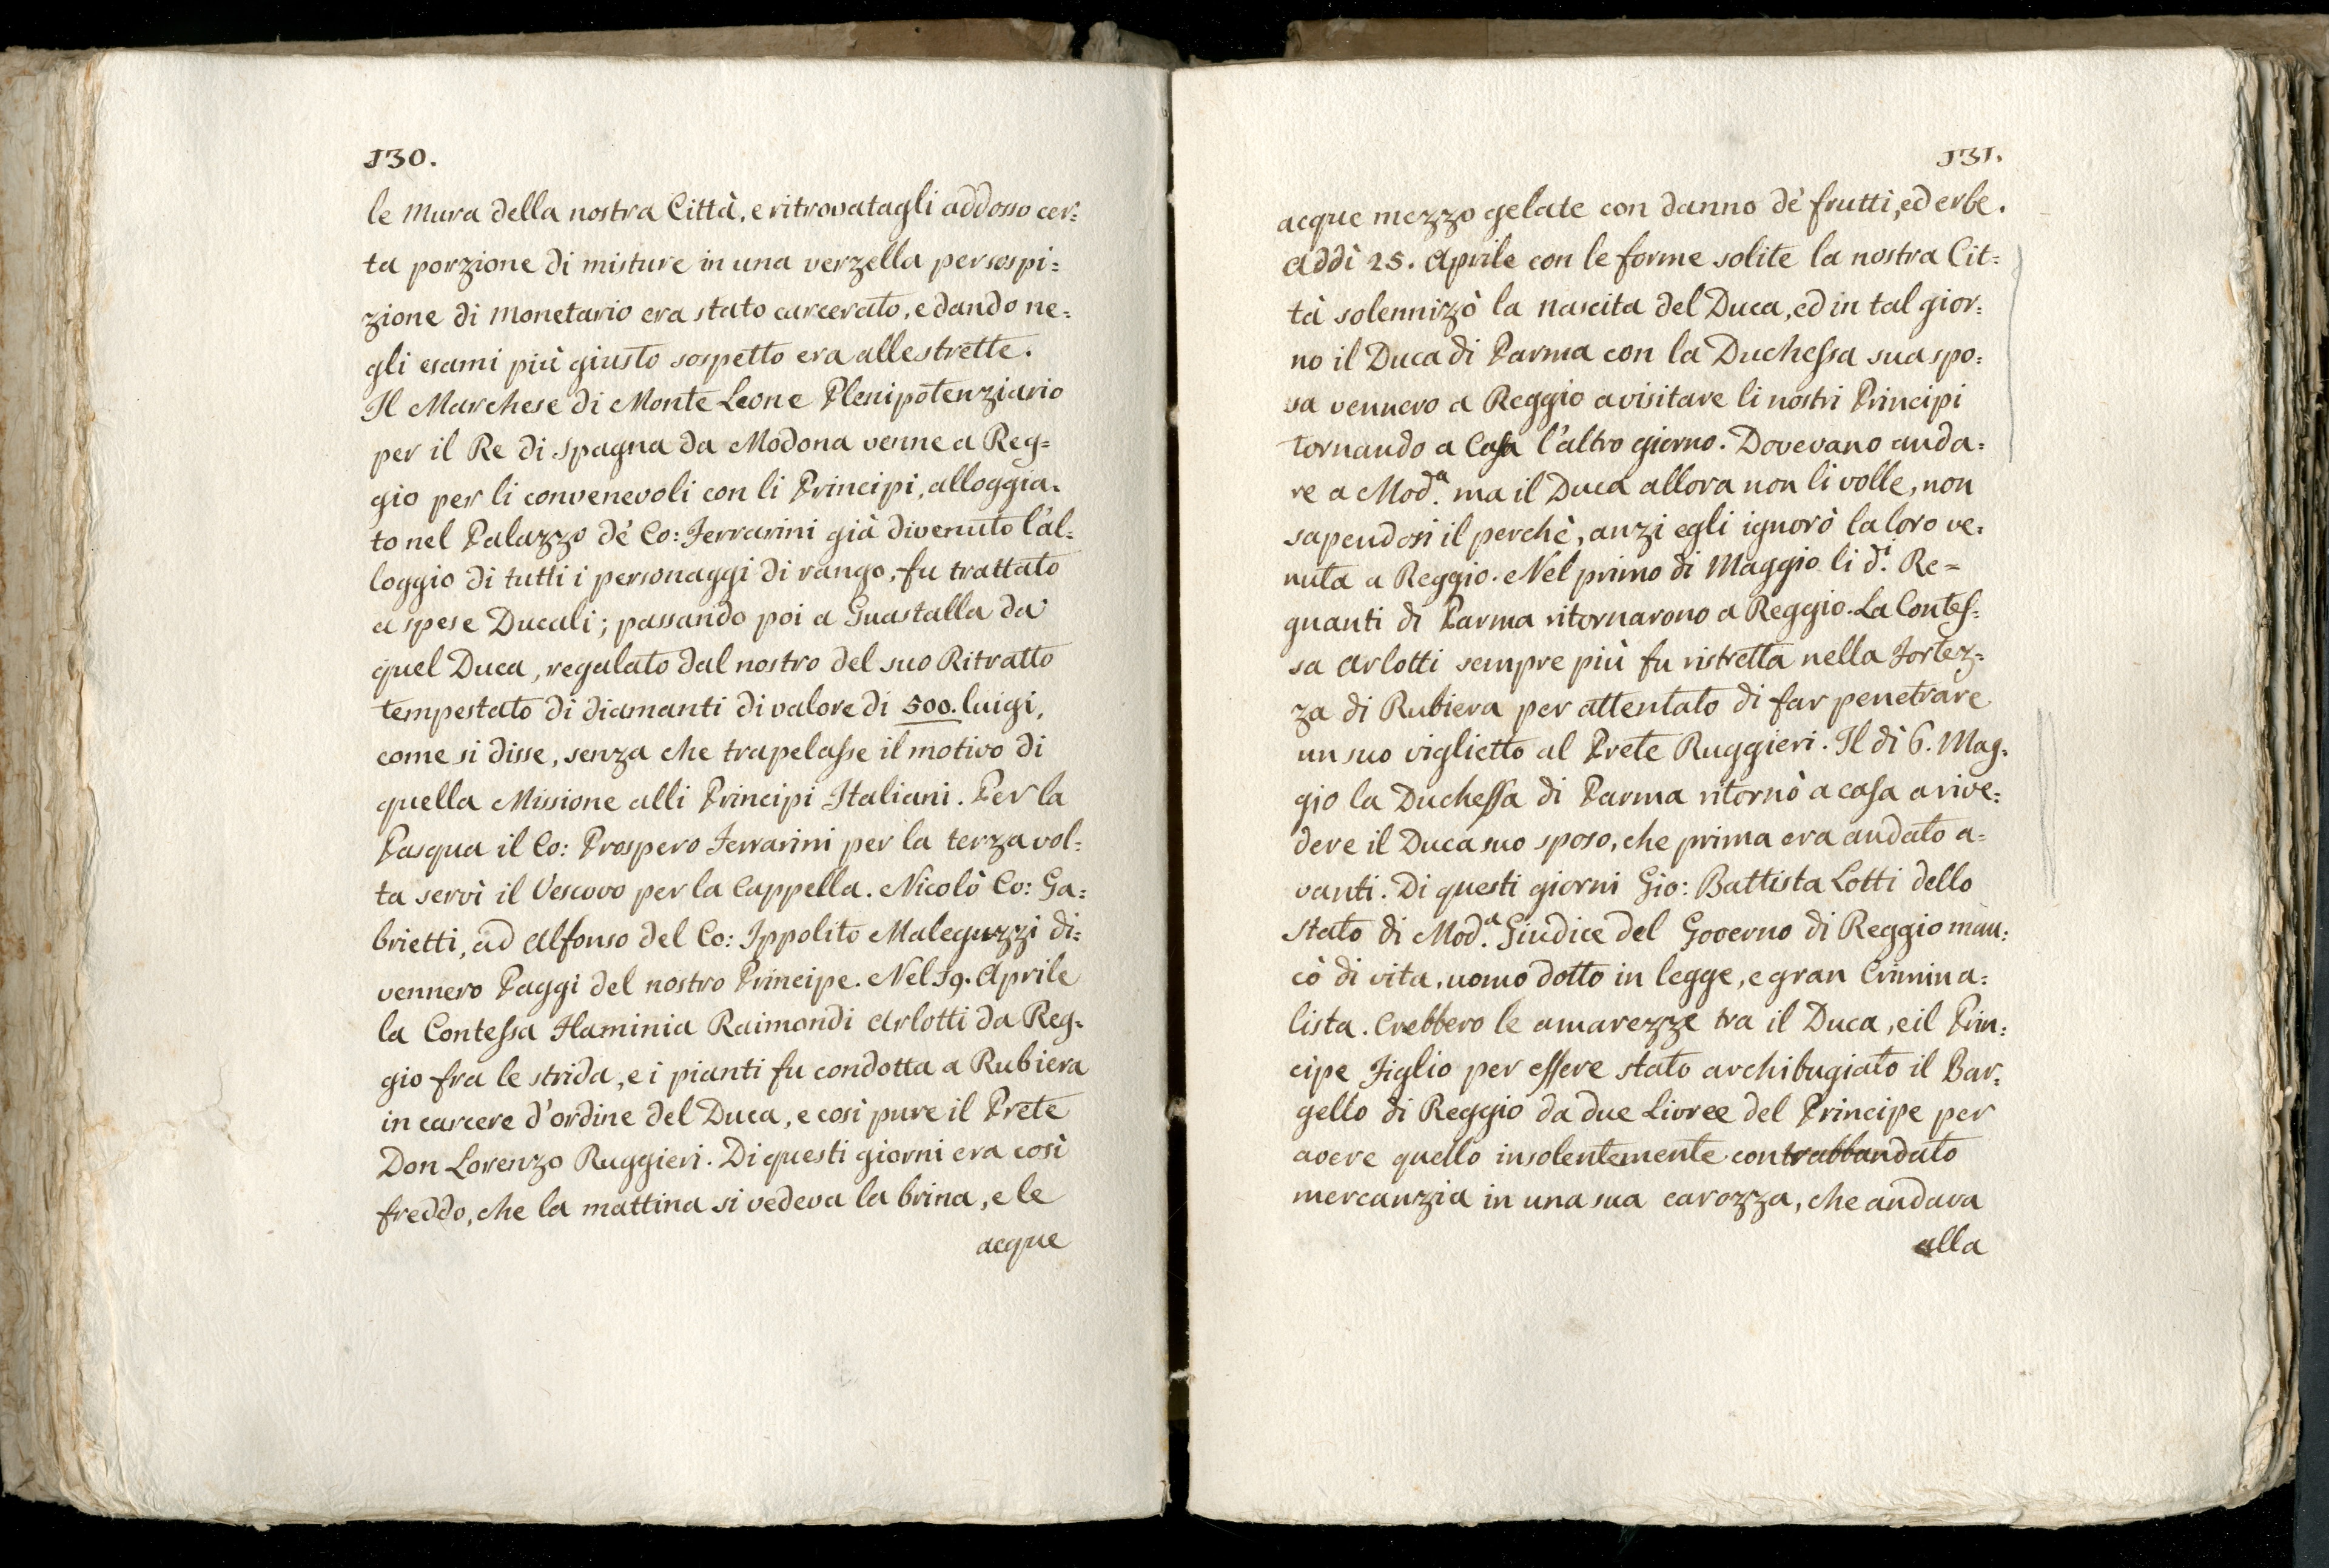 130.
le Mura della nostra Città, e ritrovatagli addosso cer:
ta porzione di misture in una verzella per sospi:
zione di Monetario era stato carcerato, e dando ne:
gli esami più giusto sospetto era alle strette.
Il Marchese di Monte Leone Plenipotenziario
per il Re di Spagna da Modona venne a Reg:
gio per li convenevoli con li Principi, alloggia:
to nel Palazzo dè Co: Ferrarini già divenuto l'al:
loggio di tutti i personaggi di rango, fu trattato
a spese Ducali; passando poi a Guastalla da
quel Duca, regalato dal nostro del suo Ritratto
tempestato di diamanti di valore di 500. luigi,
come si disse, senza che trapelasse il motivo di
quella Missione alli Principi Italiani. Per la
Pasqua il Co: Prospero Ferrarini per la terza vol:
ta servì il Vescovo per la Cappella. Nicolò Co: Ga:
brietti, ad Alfonso del Co: Ippolito Maleguzzi di:
vennero Paggi del nostro Principe. Nel 19. Aprile
la Contessa Flaminia Raimondi Arlotti da Reg:
gio fra le strida, e i pianti fu condotta a Rubiera
in carcere d'ordine del Duca, e così pure il Prete
Don Lorenzo Ruggieri. Di questi giorni era così
freddo, che la mattina si vedeva la brina, e le
acque
131.
acque mezzo gelate con danno dè frutti, ed erbe.
Addì 25. Aprile con le forme solite la nostra Cit:
tà solennizò la nascita del Duca, ed in tal gior:
no il Duca di Parma con la Duchessa sua spo:
sa vennero a Reggio a visitare li nostri Principi
tornando a Casa l'altro giorno. Dovevano anda:
re a Mod.ª ma il Duca allora non li volle, non
sapendosi il perchè, anzi egli ignorò la loro ve:
nuta a Reggio. Nel primo di Maggio li d.i Re=
gnanti di Parma ritornarono a Reggio. La Contes:
sa Arlotti sempre più fu ristretta nella Fortez:
za di Rubiera per attentato di far penetrare
un suo viglietto al Prete Ruggieri. Il dì 6. Mag:
gio la Duchessa di Parma ritornò a casa a rive:
dere il Duca suo sposo, che prima era andato a:
vanti. Di questi giorni Gio: Battista Lotti dello
Stato di Mod.ª Giudice del Governo di Reggio man:
cò di vita, uomo dotto in legge, e gran Crimina:
lista. Crebbero le amarezze tra il Duca, e il Prin:
cipe Figlio per essere stato archibugiato il Bar:
gello di Reggio da due Livree del Principe per
avere quello insolentemente contrabbandato
mercanzia in una sua carozza, che andava
alla